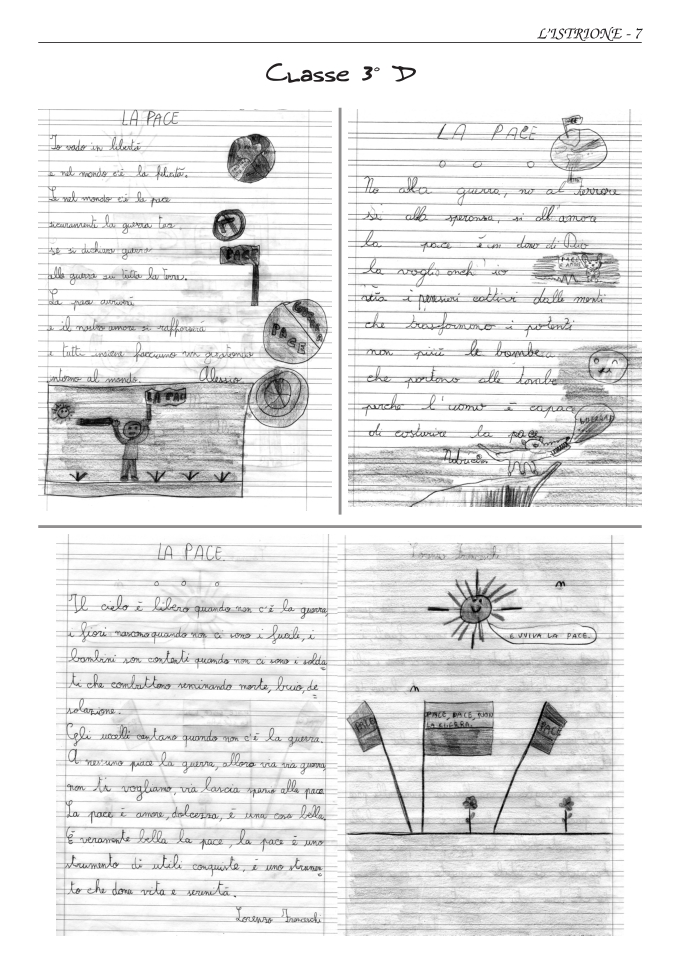 L'ISTRIONE - 7
Classe 3° D
LA PACE
Io vado in libertà
e nel mondo c'è la felicità.
Se nel mondo c'è la pace
sicuramente la guerra tac
se si dichiara guerra
alla guerra su tutta la terra.
La pace arriverà
e il nostro amore si rafforzerà
e tutti insieme facciamo un girotondo
intorno al mondo. Alessio
PACE
PACE
LA PAC
LA PACE
No alla guerra, no al terrore
sì alla speranza, sì all'amore
la pace è un dono di Dio
la voglio anch'io
via i pensieri cattivi dalle menti
che trasformano i potenti
non più le bombe
che portano alle tombe
perché l'uomo è capace
di costruire la pace
LA PACE
Il cielo è libero quando non c'è la guerra,
i fiori nascono quando non ci sono i fucili, i
bambini son contenti quando non ci sono i solda
ti che combattono seminando morte, buio, de
solazione.
Gli uccelli cantano quando non c'è la guerra.
A nessuno piace la guerra, allora via via guerra
non ti vogliamo, via lascia spazio alla pace
La pace è amore, dolcezza, è una cosa bella.
È veramente bella la pace, la pace è uno
strumento di utili conquiste, è uno strumen
to che dona vita e serenità.
Lorenzo Franceschi
Lorenzo Franceschi
EVVIVA LA PACE.
PACE
PACE, PACE, NON
LA GUERRA.
PACE